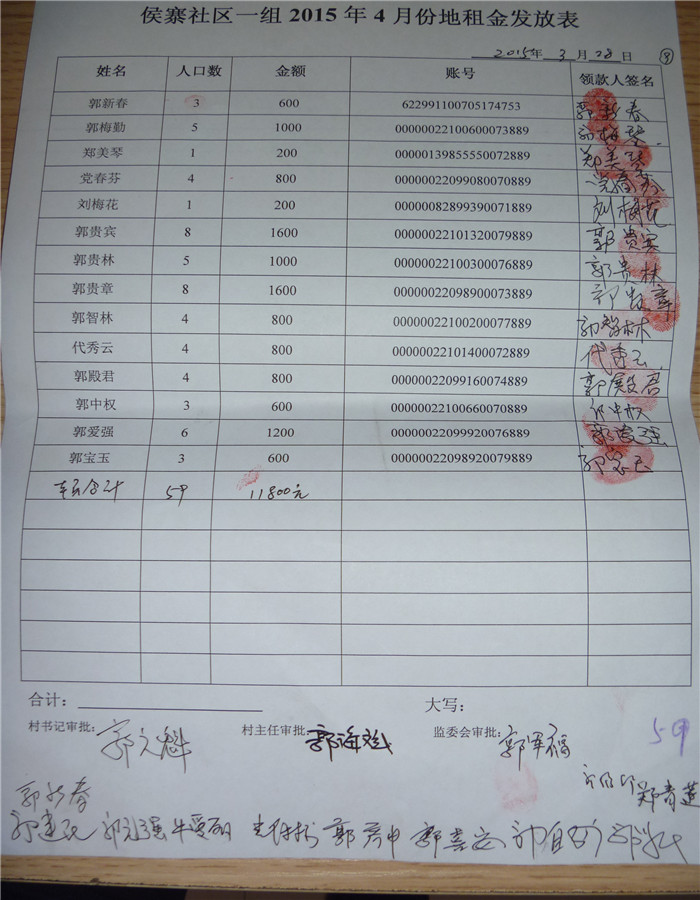 侯寨社区一组 2015 年 4 月份地租金发放表
2015年 3 月 28 日 ⑧
姓名 人口数 金额 账号 领款人签名
郭新春 3 600 622991100705174753 郭新春
郭梅勤 5 1000 00000022100600073889
郑美琴 1 200 00000139855550072889 郑美琴
党春芬 4 800 00000022099080070889 党春芬
刘梅花 1 200 00000082899390071889 刘梅花
郭贵宾 8 1600 00000022101320079889 郭贵宾
郭贵林 5 1000 00000022100300076889 郭贵林
郭贵章 8 1600 00000022098900073889 郭贵章
郭智林 4 800 00000022100200077889 郭智林
代秀云 4 800 00000022101400072889 代秀云
郭殿君 4 800 00000022099160074889 郭殿君
郭中权 3 600 00000022100660070889 郭中权
郭爱强 6 1200 00000022099920076889 郭爱强
郭宝玉 3 600 00000022098920079889 郭宝玉
合计 59 11800元
合计： 大写：
村书记审批： 村主任审批：郭海斌 监委会审批：郭军福
59
郑青莲
郭新春